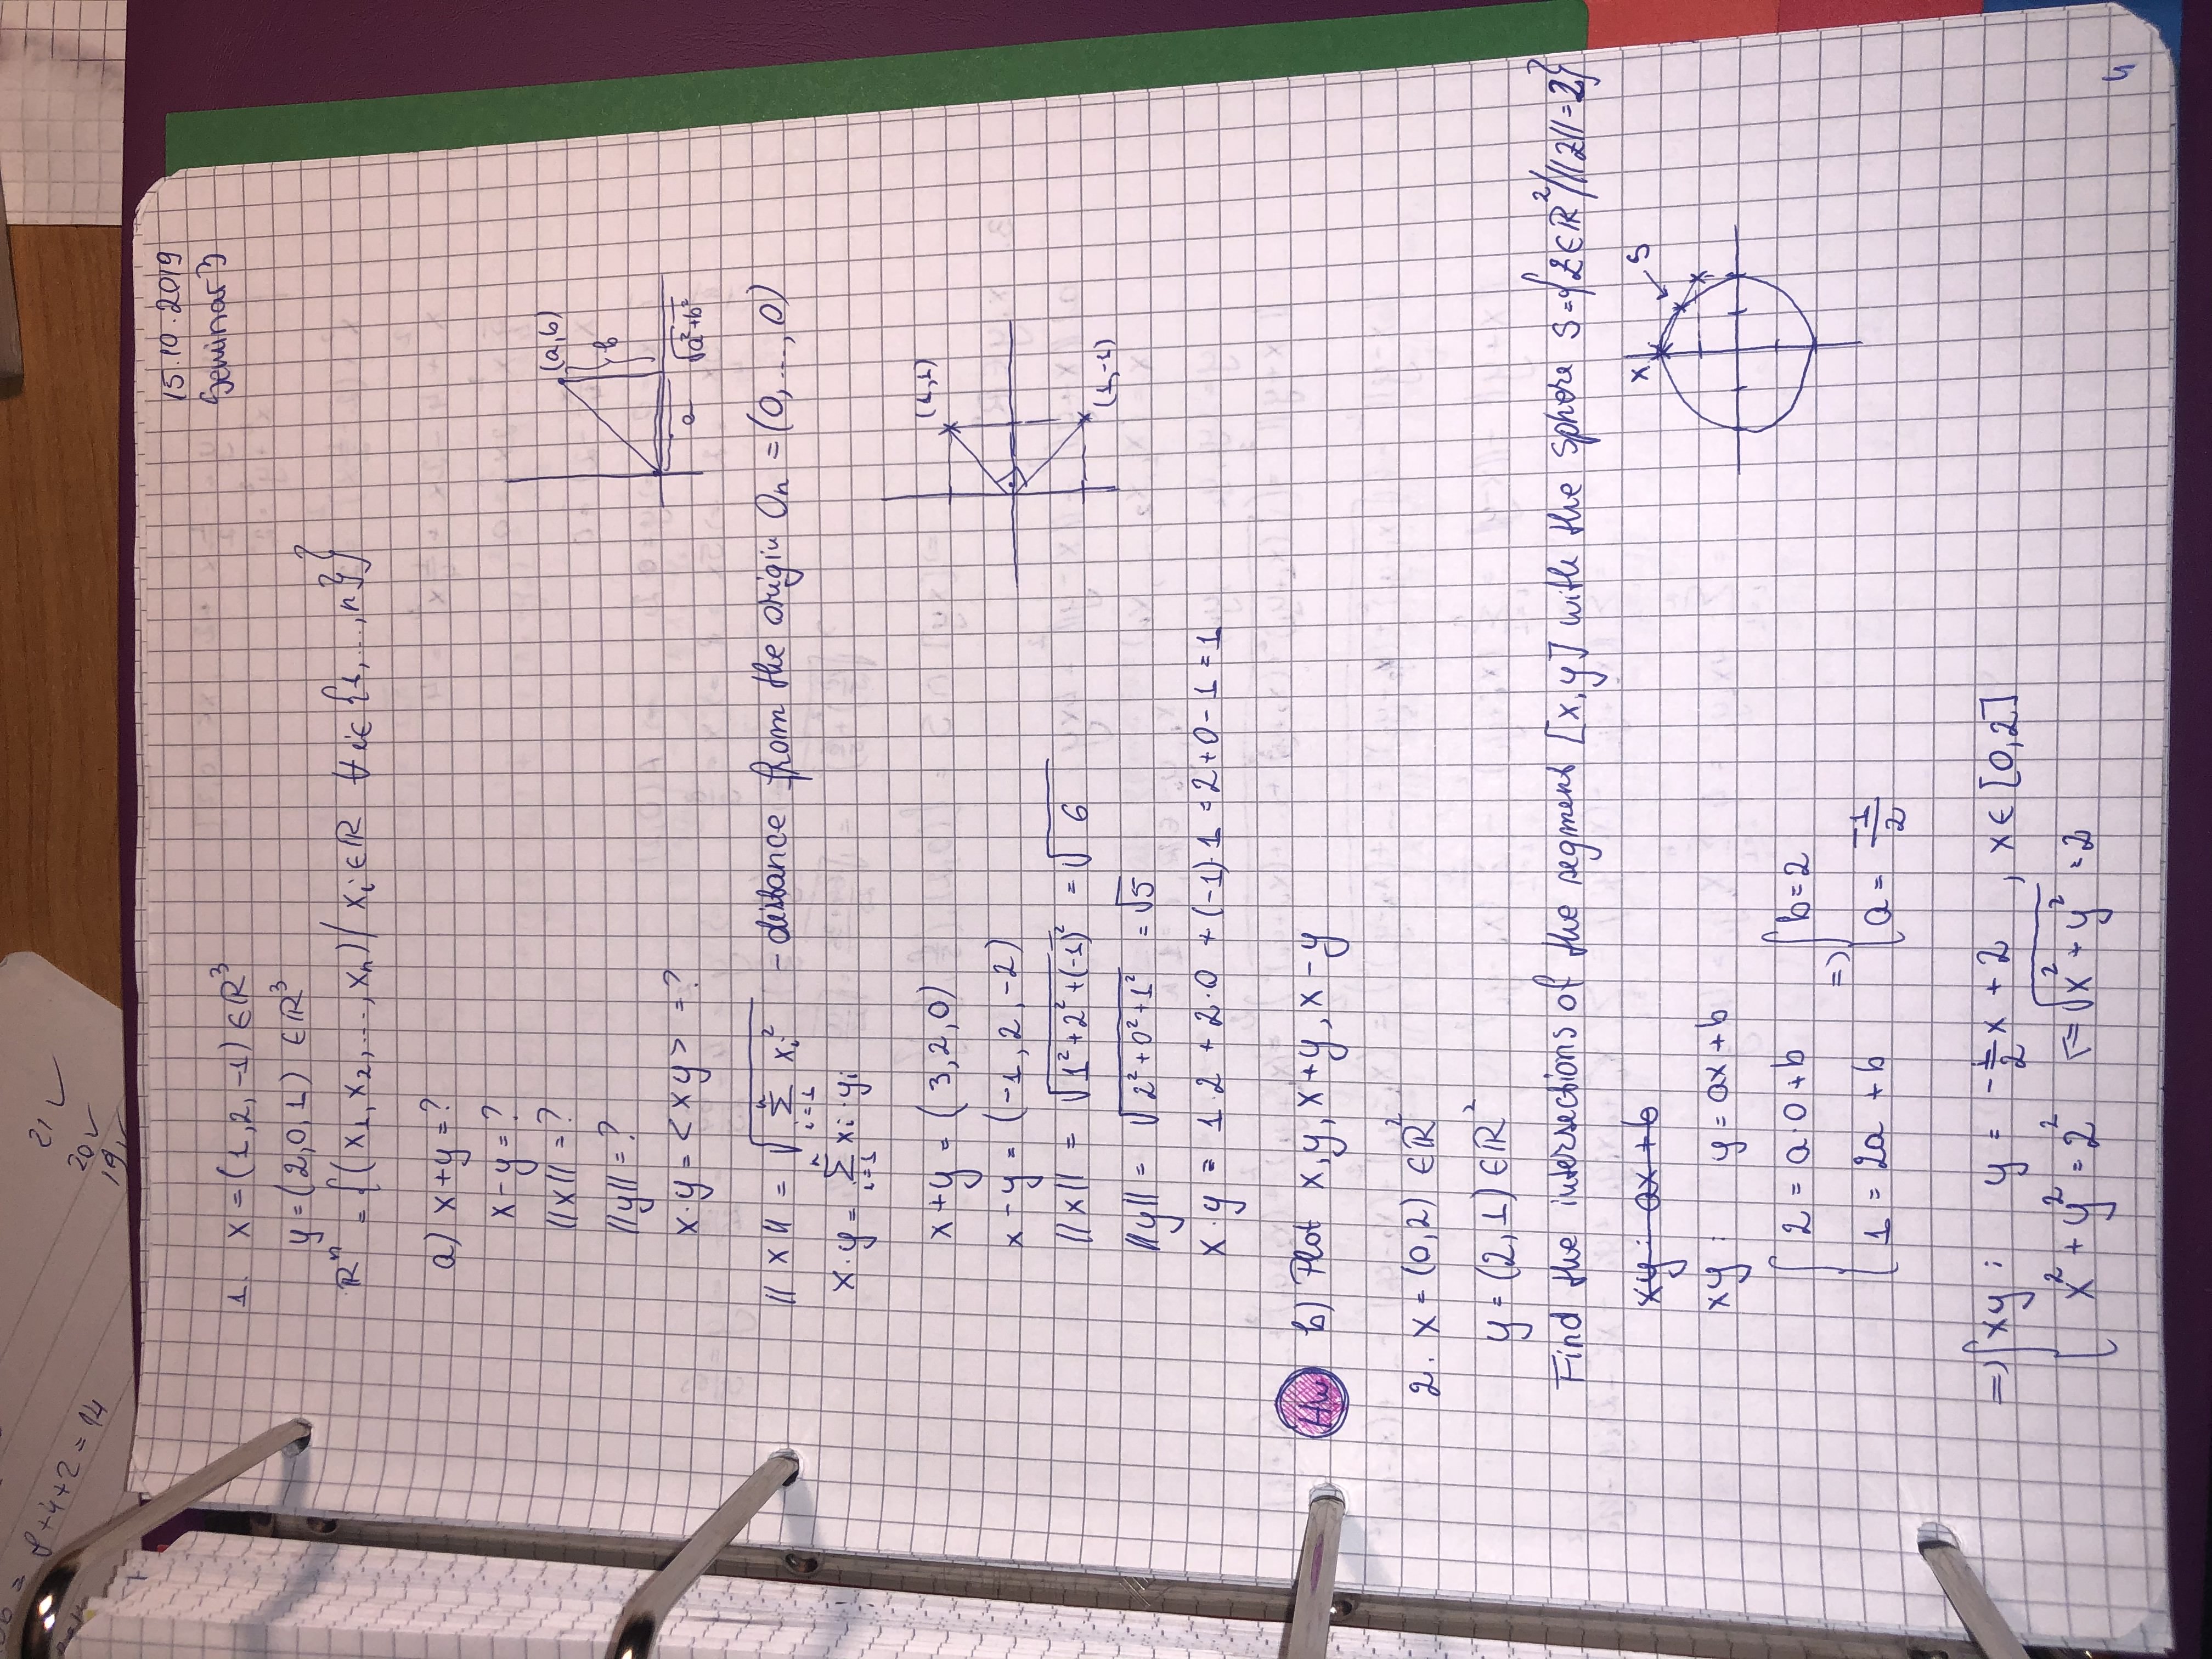 8+4+2=14
21 ✓
20 ✓
19 ✓
15.10.2019
Seminar 3
1. x = (1,2,-1) ∈ ℝ³
y = (2,0,1) ∈ ℝ³
ℝⁿ = {(x₁, x₂, ..., xₙ) / xᵢ ∈ ℝ ∀ i ∈ {1, ..., n}}
a) x+y = ?
x-y = ?
||x|| = ?
||y|| = ?
x·y = <xy> = ?
(a,b)
b
a
√(a²+b²)
||x|| = √(∑ᵢ₌₁ⁿ xᵢ²) - distance from the origin Oₙ = (0, ..., 0)
x·y = ∑ᵢ₌₁ⁿ xᵢ·yᵢ
x+y = (3,2,0)
x-y = (-1,2,-2)
||x|| = √(1²+2²+(-1)²) = √6
||y|| = √(2²+0²+1²) = √5
x·y = 1·2 + 2·0 + (-1)·1 = 2+0-1 = 1
(1,1)
(1,-1)
HW b) Plot x, y, x+y, x-y
2. x = (0,2) ∈ ℝ²
y = (2,1) ∈ ℝ²
Find the intersections of the segment [x,y] with the sphere S = {z ∈ ℝ² / ||z|| = 2}
xy: ax+b
xy: y = ax+b
x
S
2 = a·0+b => b = 2
1 = 2a+b a = -1/2
=> xy: y = -1/2 x + 2, x ∈ [0,2]
x²+y² = 2² <= √(x²+y²) = 2
4